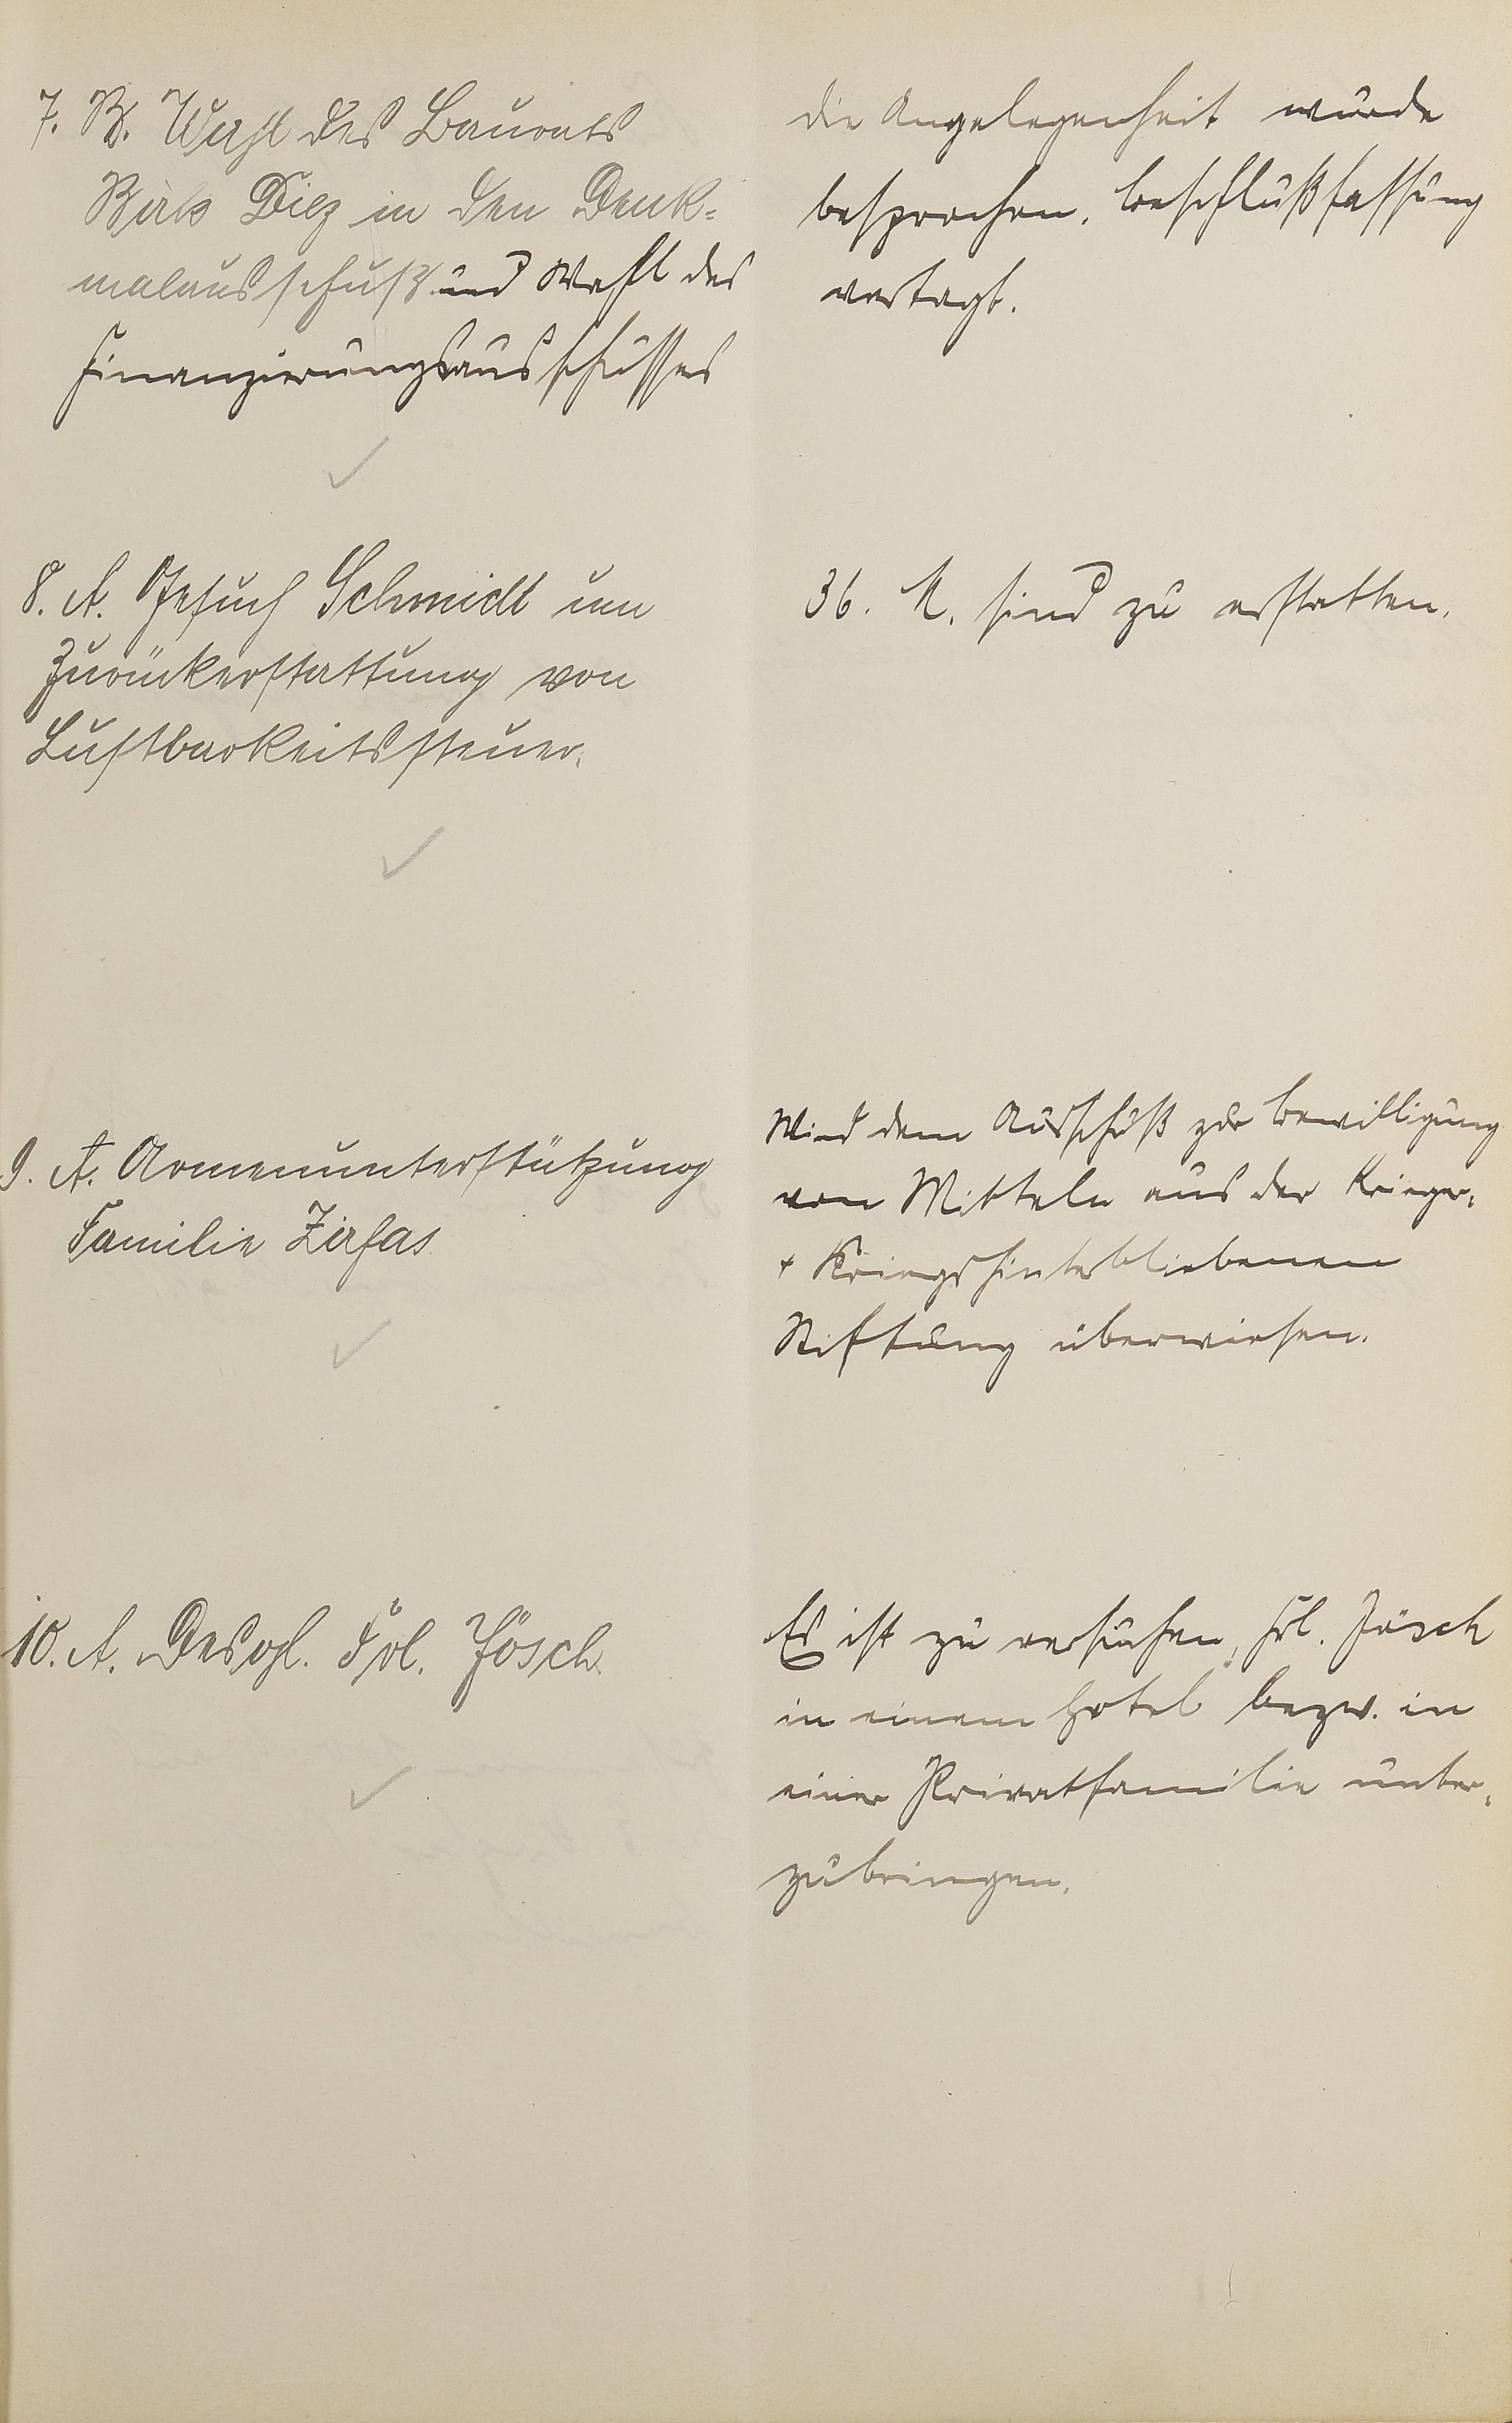 7. B. Wahl des Baurats
Birk Diez in den Denk-
malausschuß und Wahl des
Finanzierungsausschusses
die Angelegenheit wurde
besprochen. Beschlußfassung
vertagt.
8. A. Gesuch Schmidt um
Zurückerstattung von
Lustbarkeitssteuer.
36. M. sind zu erstatten.
9. A. Armenunterstützung
Familie Zirfas
Wird dem Ausschuß zur Bewilligung
von Mitteln aus der Krieger-
+ Kriegshinterbliebenen
Stiftung überwiesen.
10. A. Desgl. Frl. Jösch
Es ist zu versuchen, Frl. Jösch
in einem Hotel bezw. in
einer Privatfamilie unter-
zubringen.